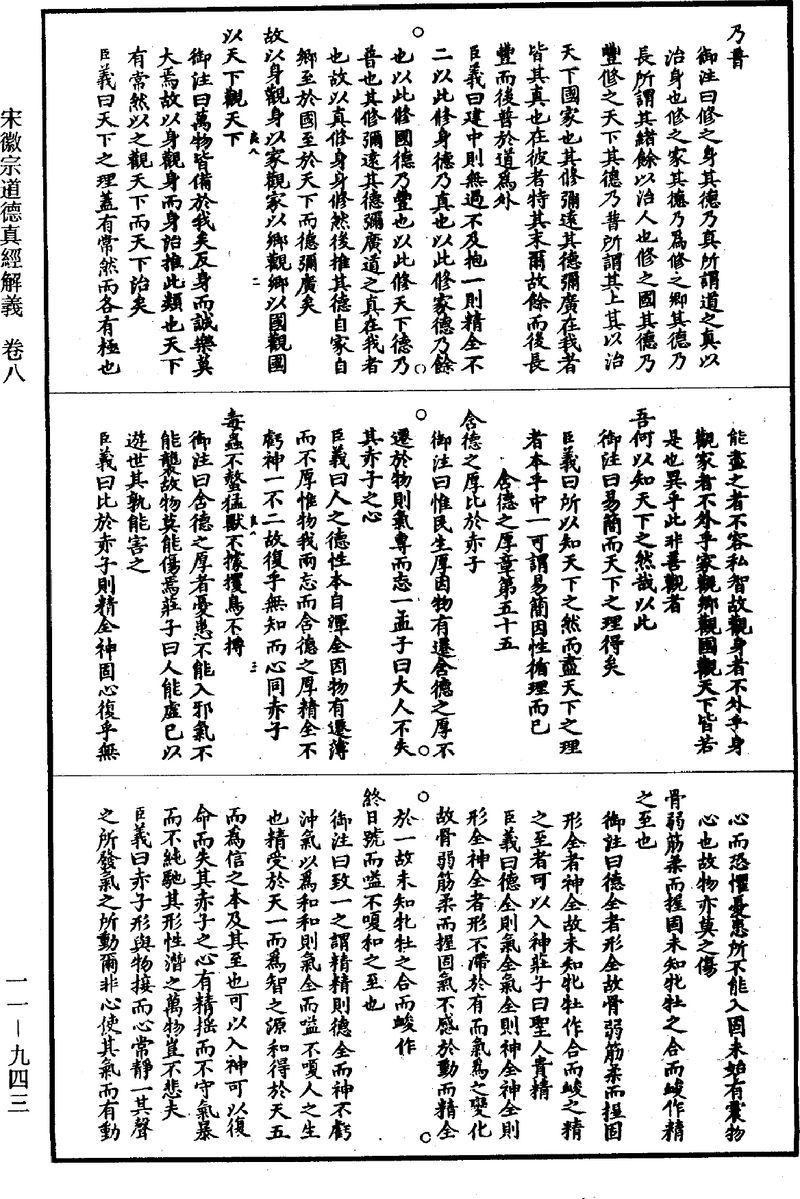 宋徽宗道德真經解義　卷八
一一—九四三
乃普
御注曰修之身其德乃真所謂道之真以
治身也修之家其德乃為修之鄉其德乃
長所謂其緒餘以治人也修之國其德乃
豐修之天下其德乃普所謂其上其以治
天下國家也其修彌遠其德彌廣在我者
皆其真也在彼者特其末爾故餘而後長
豐而後普於道為外
臣義曰建中則無過不及抱一則精全不
二以此修身德乃真也以此修家德乃餘
也以此修國德乃豐也以此修天下德乃
普也其修彌遠其德彌廣道之真在我者
也故以真修身身修然後推其德自家自
鄉至於國至於天下而德彌廣矣
故以身觀身以家觀家以鄉觀鄉以國觀國
以天下觀天下　良八　二
御注曰萬物皆備於我矣反身而誠樂莫
大焉故以身觀身而身治推此類也天下
有常然以之觀天下而天下治矣
臣義曰天下之理蓋有常然而各有極也
能盡之者不容私智故觀身者不外乎身
觀家者不外乎家觀鄉觀國觀天下皆若
是也異乎此非善觀者
吾何以知天下之然哉以此
御注曰易簡而天下之理得矣
臣義曰所以知天下之然而盡天下之理
者本乎中一可謂易簡因性循理而已
含德之厚章第五十五
含德之厚比於赤子
御注曰惟民生厚因物有遷含德之厚不
遷於物則氣專而志一孟子曰大人不失
其赤子之心
臣義曰人之德性本自渾全因物有遷薄
而不厚惟物我兩忘而含德之厚精全不
虧神一不二故復乎無知而心同赤子
毒蟲不螫猛獸不據攫鳥不搏　良八　三
御注曰含德之厚者憂患不能入邪氣不
能襲故物莫能傷焉莊子曰人能虛己以
遊世其孰能害之
臣義曰比於赤子則精全神固心復乎無
心而恐懼憂患所不能入固未始有震物
心也故物亦莫之傷
骨弱筋柔而握固未知牝牡之合而峻作精
之至也
御注曰德全者形全故骨弱筋柔而握固
形全者神全故未知牝牡作合而峻之精
之至者可以入神莊子曰聖人貴精
臣義曰德全則氣全氣全則神全神全則
形全神全者形不滯於有而氣為之變化
故骨弱筋柔而握固氣不感於動而精全
於一故未知牝牡之合而峻作
終日號而嗌不嗄和之至也
御注曰致一之謂精精則德全而神不虧
沖氣以為和和則氣全而嗌不嗄人之生
也精受於天一而為智之源和得於天五
而為信之本及其至也可以入神可以復
命而失其赤子之心有精搖而不守氣暴
而不純馳其形性潛之萬物豈不悲夫
臣義曰赤子形與物接而心常靜一其聲
之所發氣之所動爾非心使其氣而有動